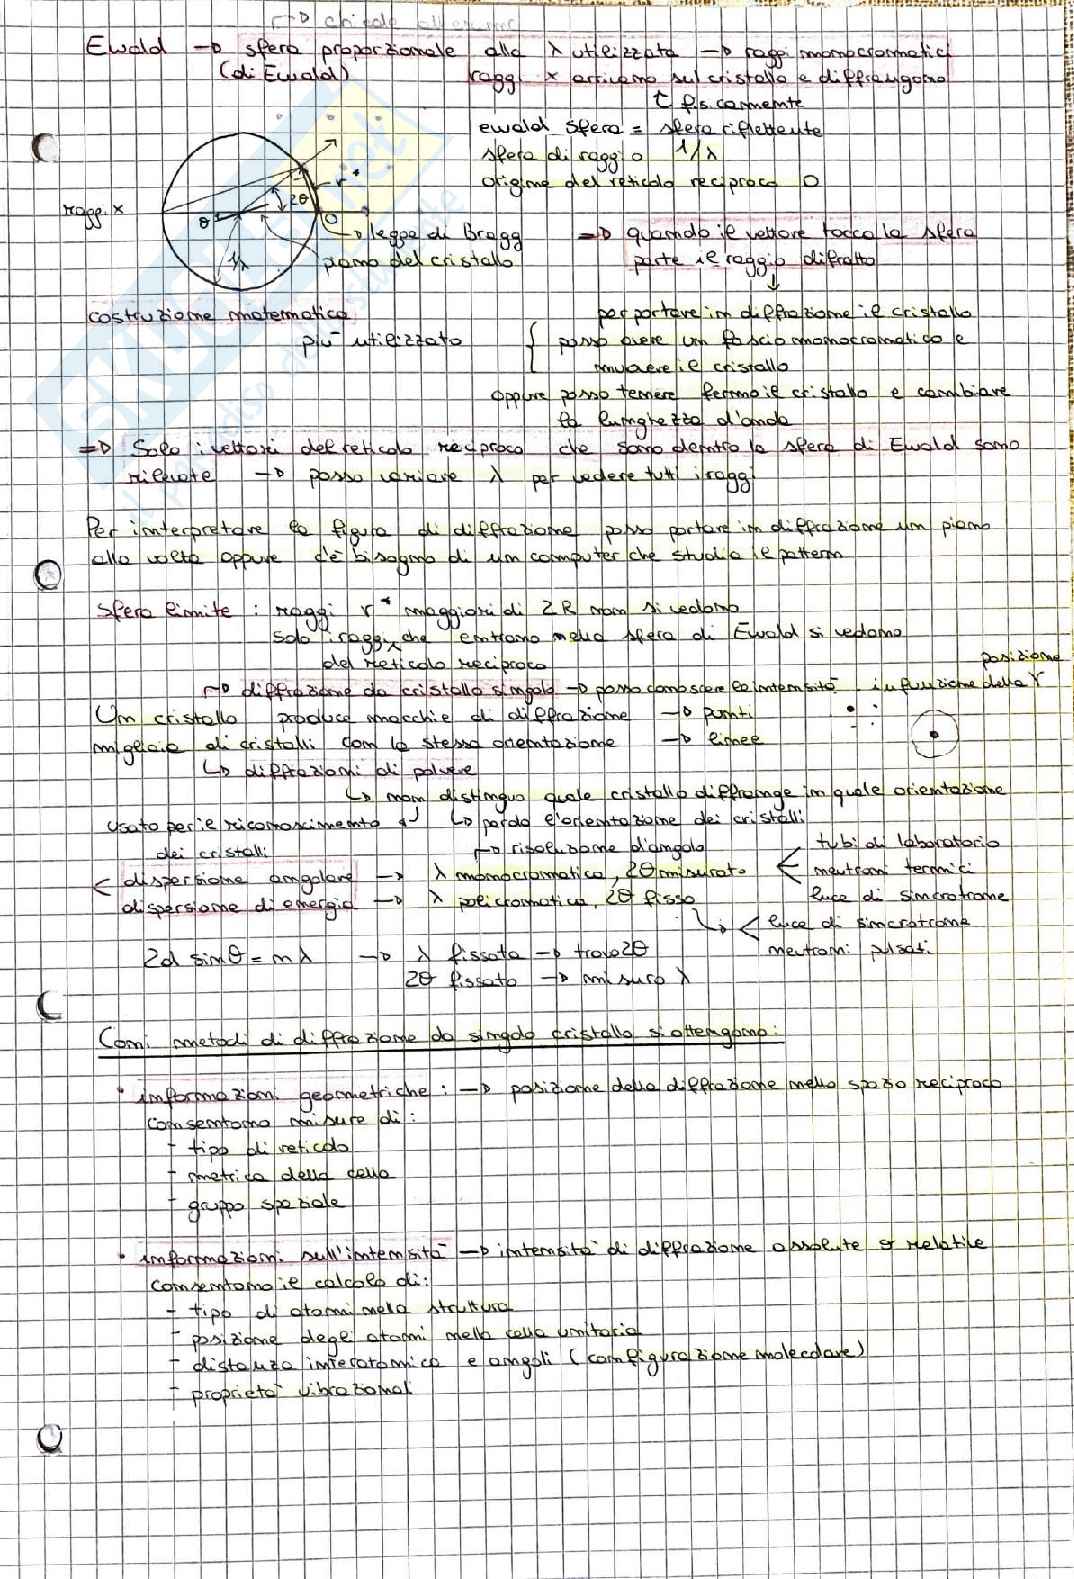 → chiede all'esame
Ewald → sfera proporzionale alla λ utilizzata → raggi monocromatici
(di Ewald) raggi x arrivano sul cristallo e diffrangono
↑ fisicamente
ewald sfera = sfera riflettente
sfera di raggio 1/λ
origine del reticolo reciproco O
raggi x
θ 2θ r* O
1/λ
→ legge di Bragg
piano del cristallo
⇒ quando il vettore tocca la sfera
parte il raggio difratto
costruzione matematica
più utilizzato
per portare in diffrazione il cristallo
posso avere un fascio monocromatico e
muovere il cristallo
oppure posso tenere fermo il cristallo e cambiare
la lunghezza d'onda
⇒ Solo i vettori del reticolo reciproco che sono dentro la sfera di Ewald sono
rilevate → posso variare λ per vedere tutti i raggi
Per interpretare la figura di diffrazione posso portare in diffrazione un piano
alla volta oppure c'è bisogno di un computer che studia il pattern
sfera limite : raggi r* maggiori di 2R non si vedono
solo i raggi che entrano nella sfera di Ewald si vedono
del reticolo reciproco
→ diffrazione da cristallo singolo → posso conoscere la intensità in funzione della r
posizione
Un cristallo produce macchie di diffrazione → punti
migliaia di cristalli con la stessa orientazione → linee
↳ diffrazioni di polvere
↳ non distinguo quale cristallo diffrange in quale orientazione
usato per il riconoscimento ↳ perdo l'orientazione dei cristalli
dei cristalli
→ risoluzione d'angolo
dispersione angolare → λ monocromatica, 2θ misurato
tubi di laboratorio
neutroni termici
luce di sincrotrone
dispersione di energia → λ policromatica, 2θ fisso
luce di sincrotrone
neutroni pulsati
2d sinθ = nλ → λ fissata → trovo 2θ
2θ fissato → misuro λ
Con i metodi di diffrazione da singolo cristallo si ottengono:
• informazioni geometriche : → posizione della diffrazione nello spazio reciproco
consentono misure di :
- tipo di reticolo
- metrica della cella
- gruppo spaziale
• informazioni sull'intensità → intensità di diffrazione assolute o relative
consentono il calcolo di:
- tipo di atomi nella struttura
- posizione degli atomi nella cella unitaria
- distanza interatomica e angoli (configurazione molecolare)
- proprietà vibrazionali